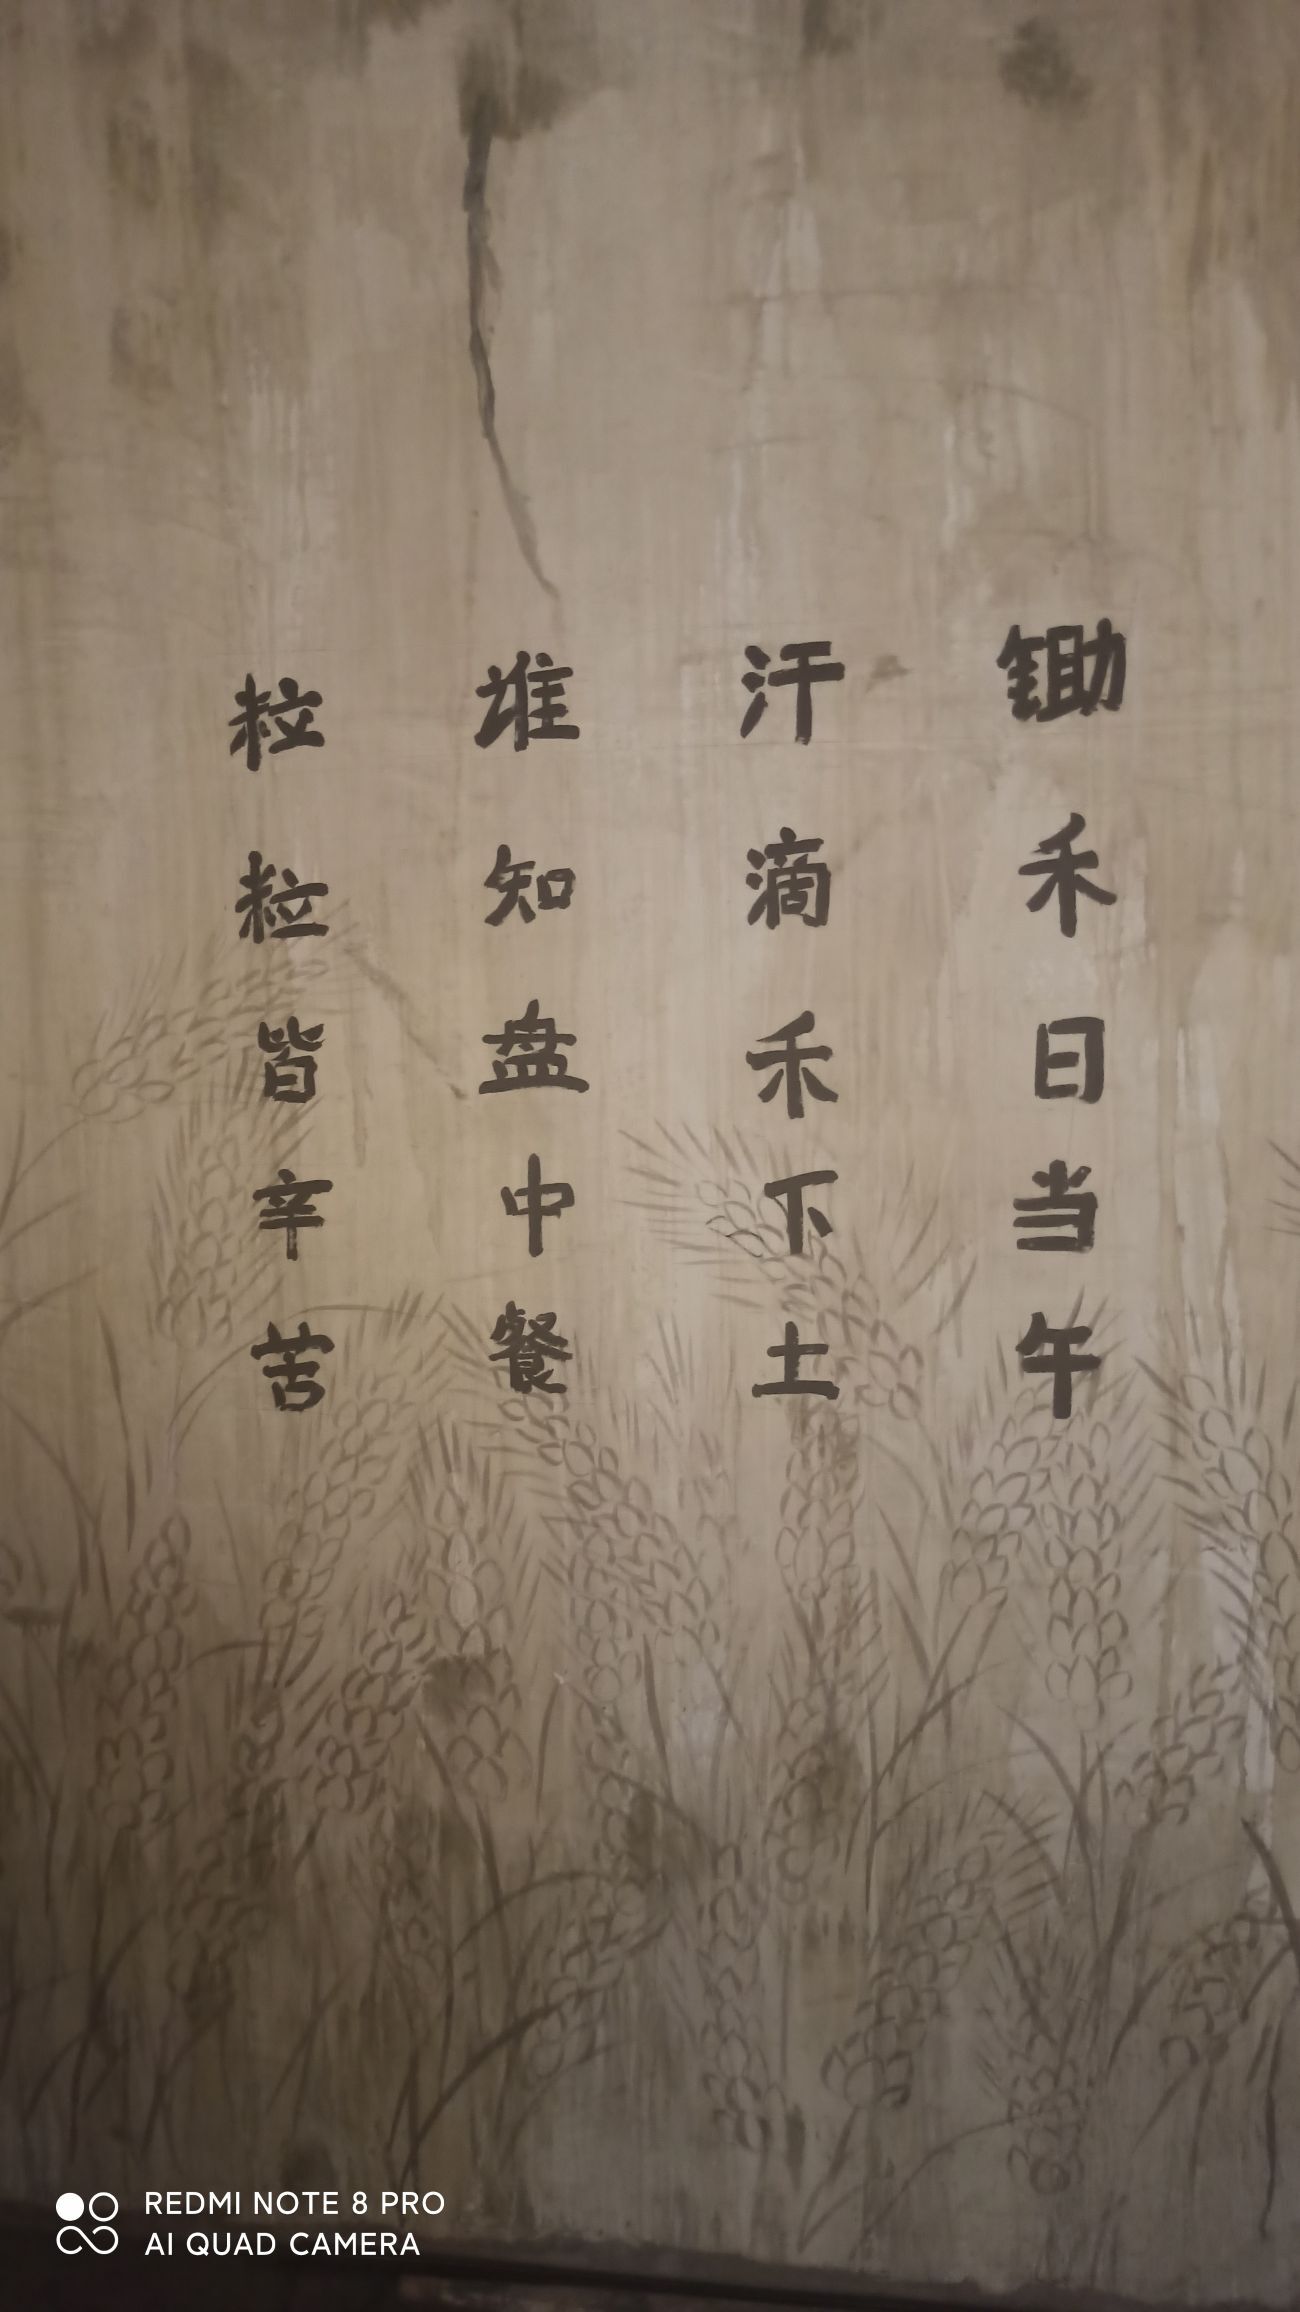 锄禾日当午
汗滴禾下土
谁知盘中餐
粒粒皆辛苦
REDMI NOTE 8 PRO
AI QUAD CAMERA